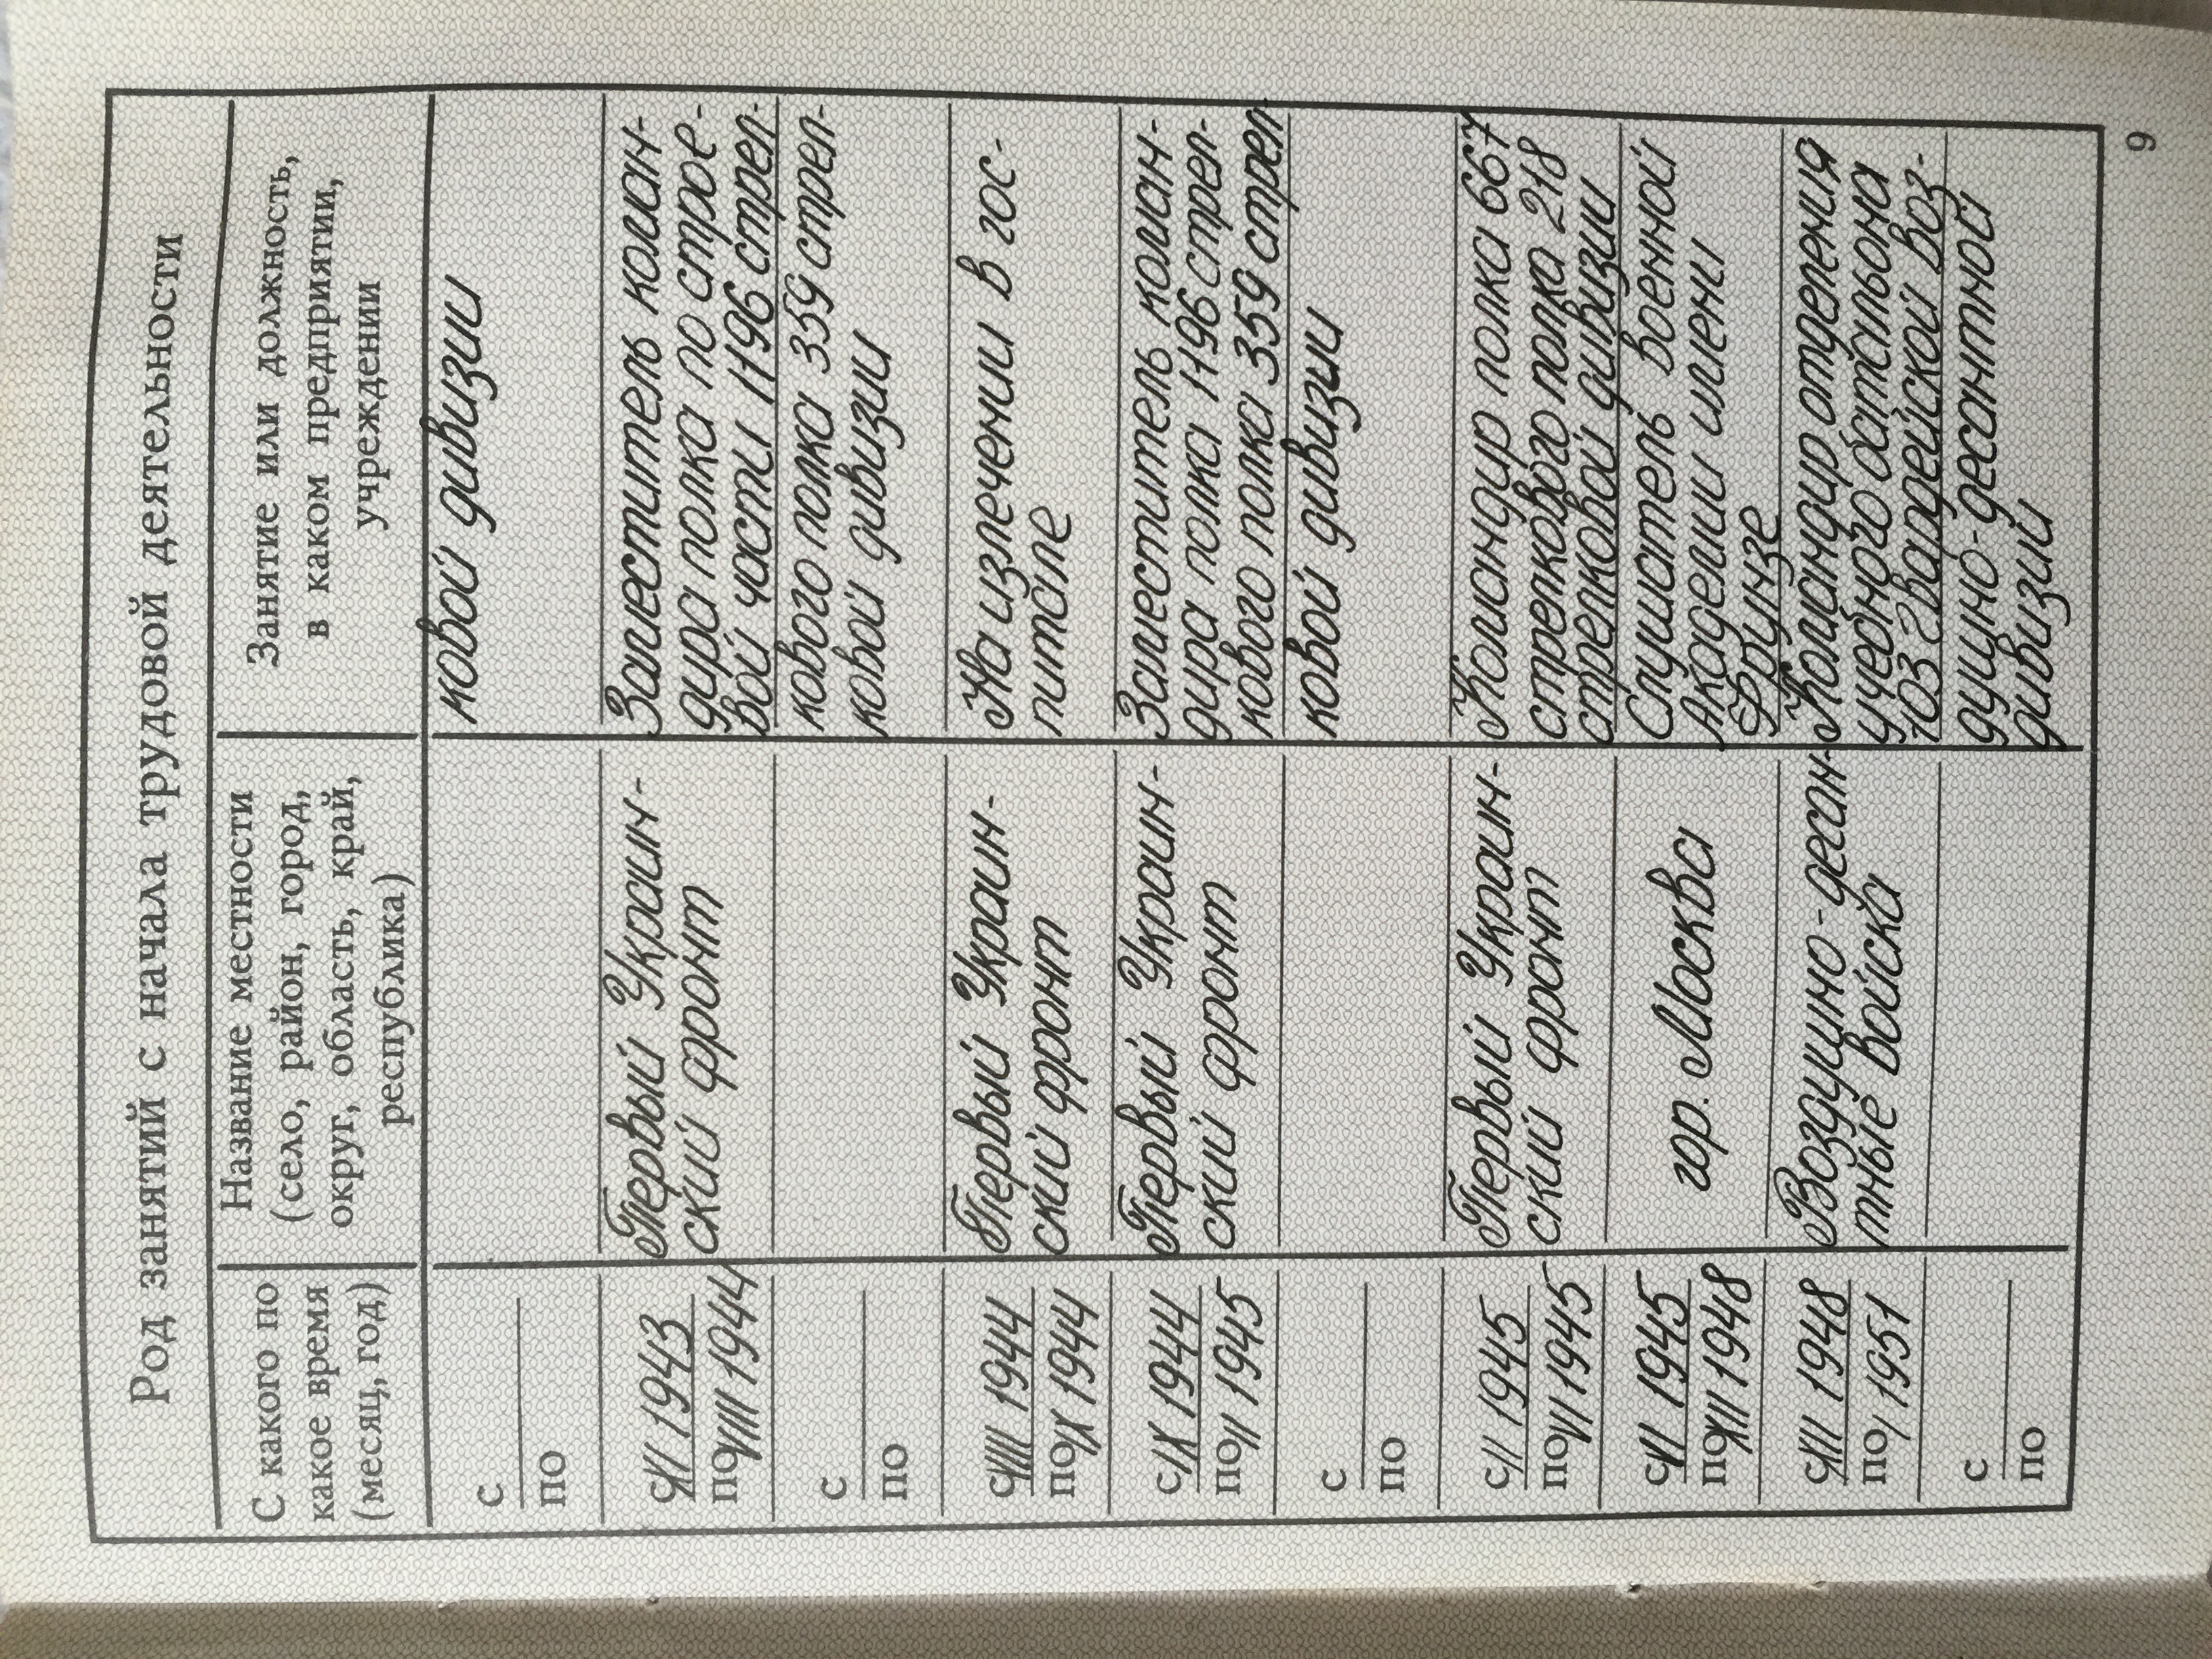 Род занятий с начала трудовой деятельности
С какого по
какое время
(месяц, год)
Название местности
(село, район, город,
округ, область, край,
республика)
Занятие или должность,
в каком предприятии,
учреждении
с
по
ковой дивизии
с XI 1943
по VIII 1944
Первый Украин-
ский фронт
Заместитель коман-
дира полка по строе-
вой части 1196 стрел-
с
по
кового полка 359 стрел-
ковой дивизии
с VIII 1944
по IX 1944
Первый Украин-
ский фронт
На излечении в гос-
питале
с IX 1944
по II 1945
Первый Украин-
ский фронт
Заместитель коман-
дира полка 1196 стрел-
кового полка 359 стрел
с
по
ковой дивизии
с II 1945
по VI 1945
Первый Украин-
ский фронт
Командир полка 667
стрелкового полка 218
стрелковой дивизии
с VI 1945
по XII 1948
гор. Москва
Слушатель военной
Академии имени
Фрунзе
с XII 1948
по I 1951
Воздушно-десан-
тные войска
Командир отделения
учебного батальона
103 гвардейской воз-
с
по
душно-десантной
дивизии
9